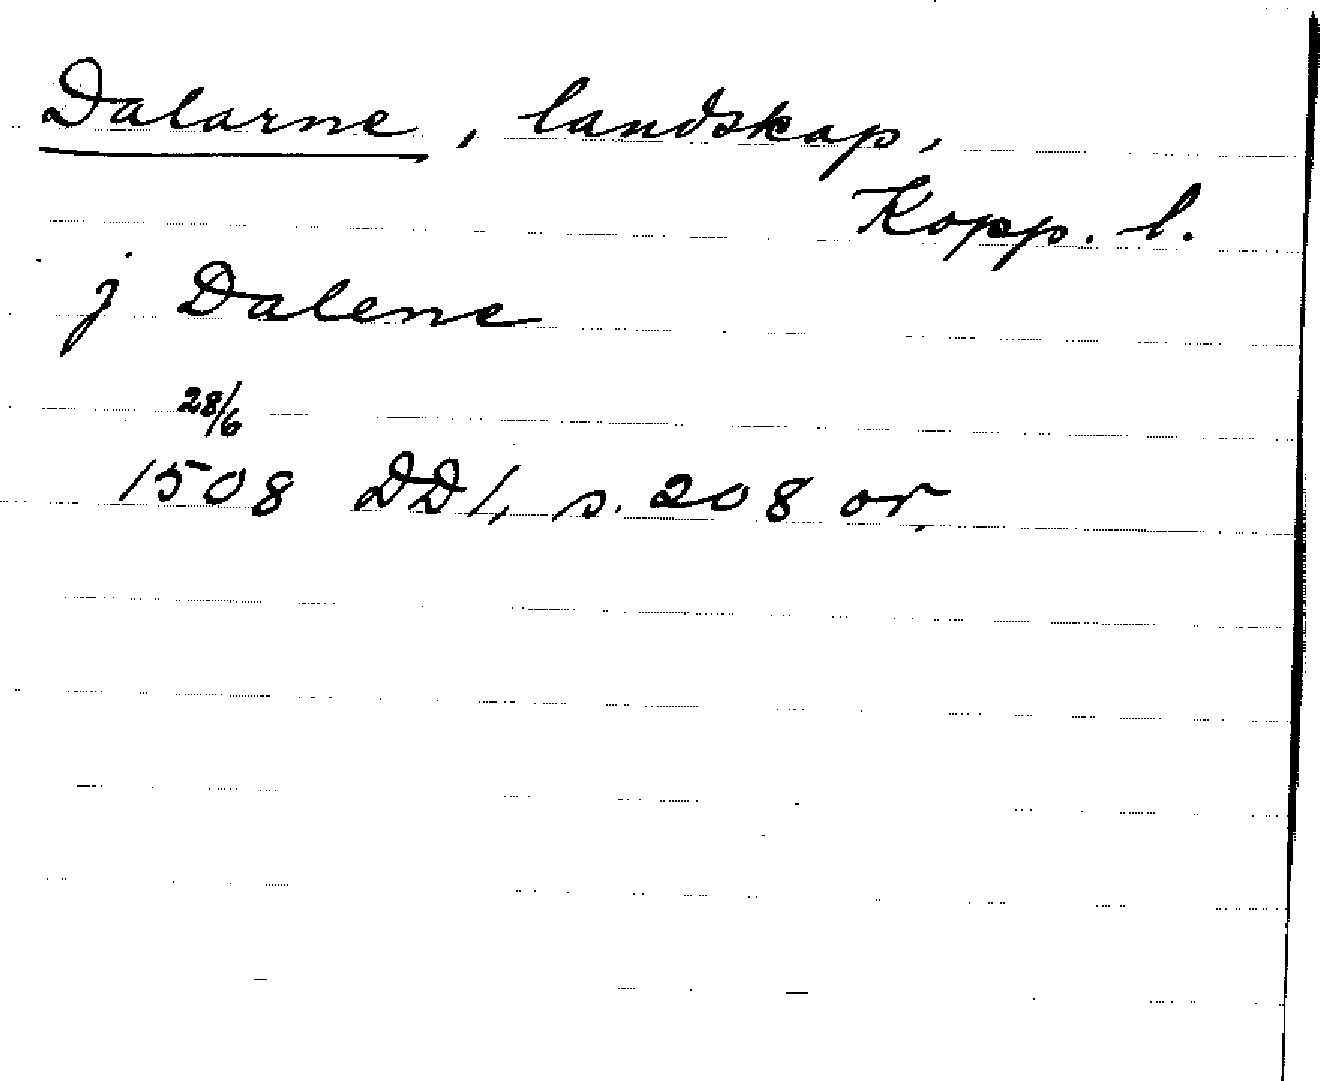 Dalarne, landskap,
Kopp. l.
j Dalene
28/6
1508 DD 1, s. 208 or.